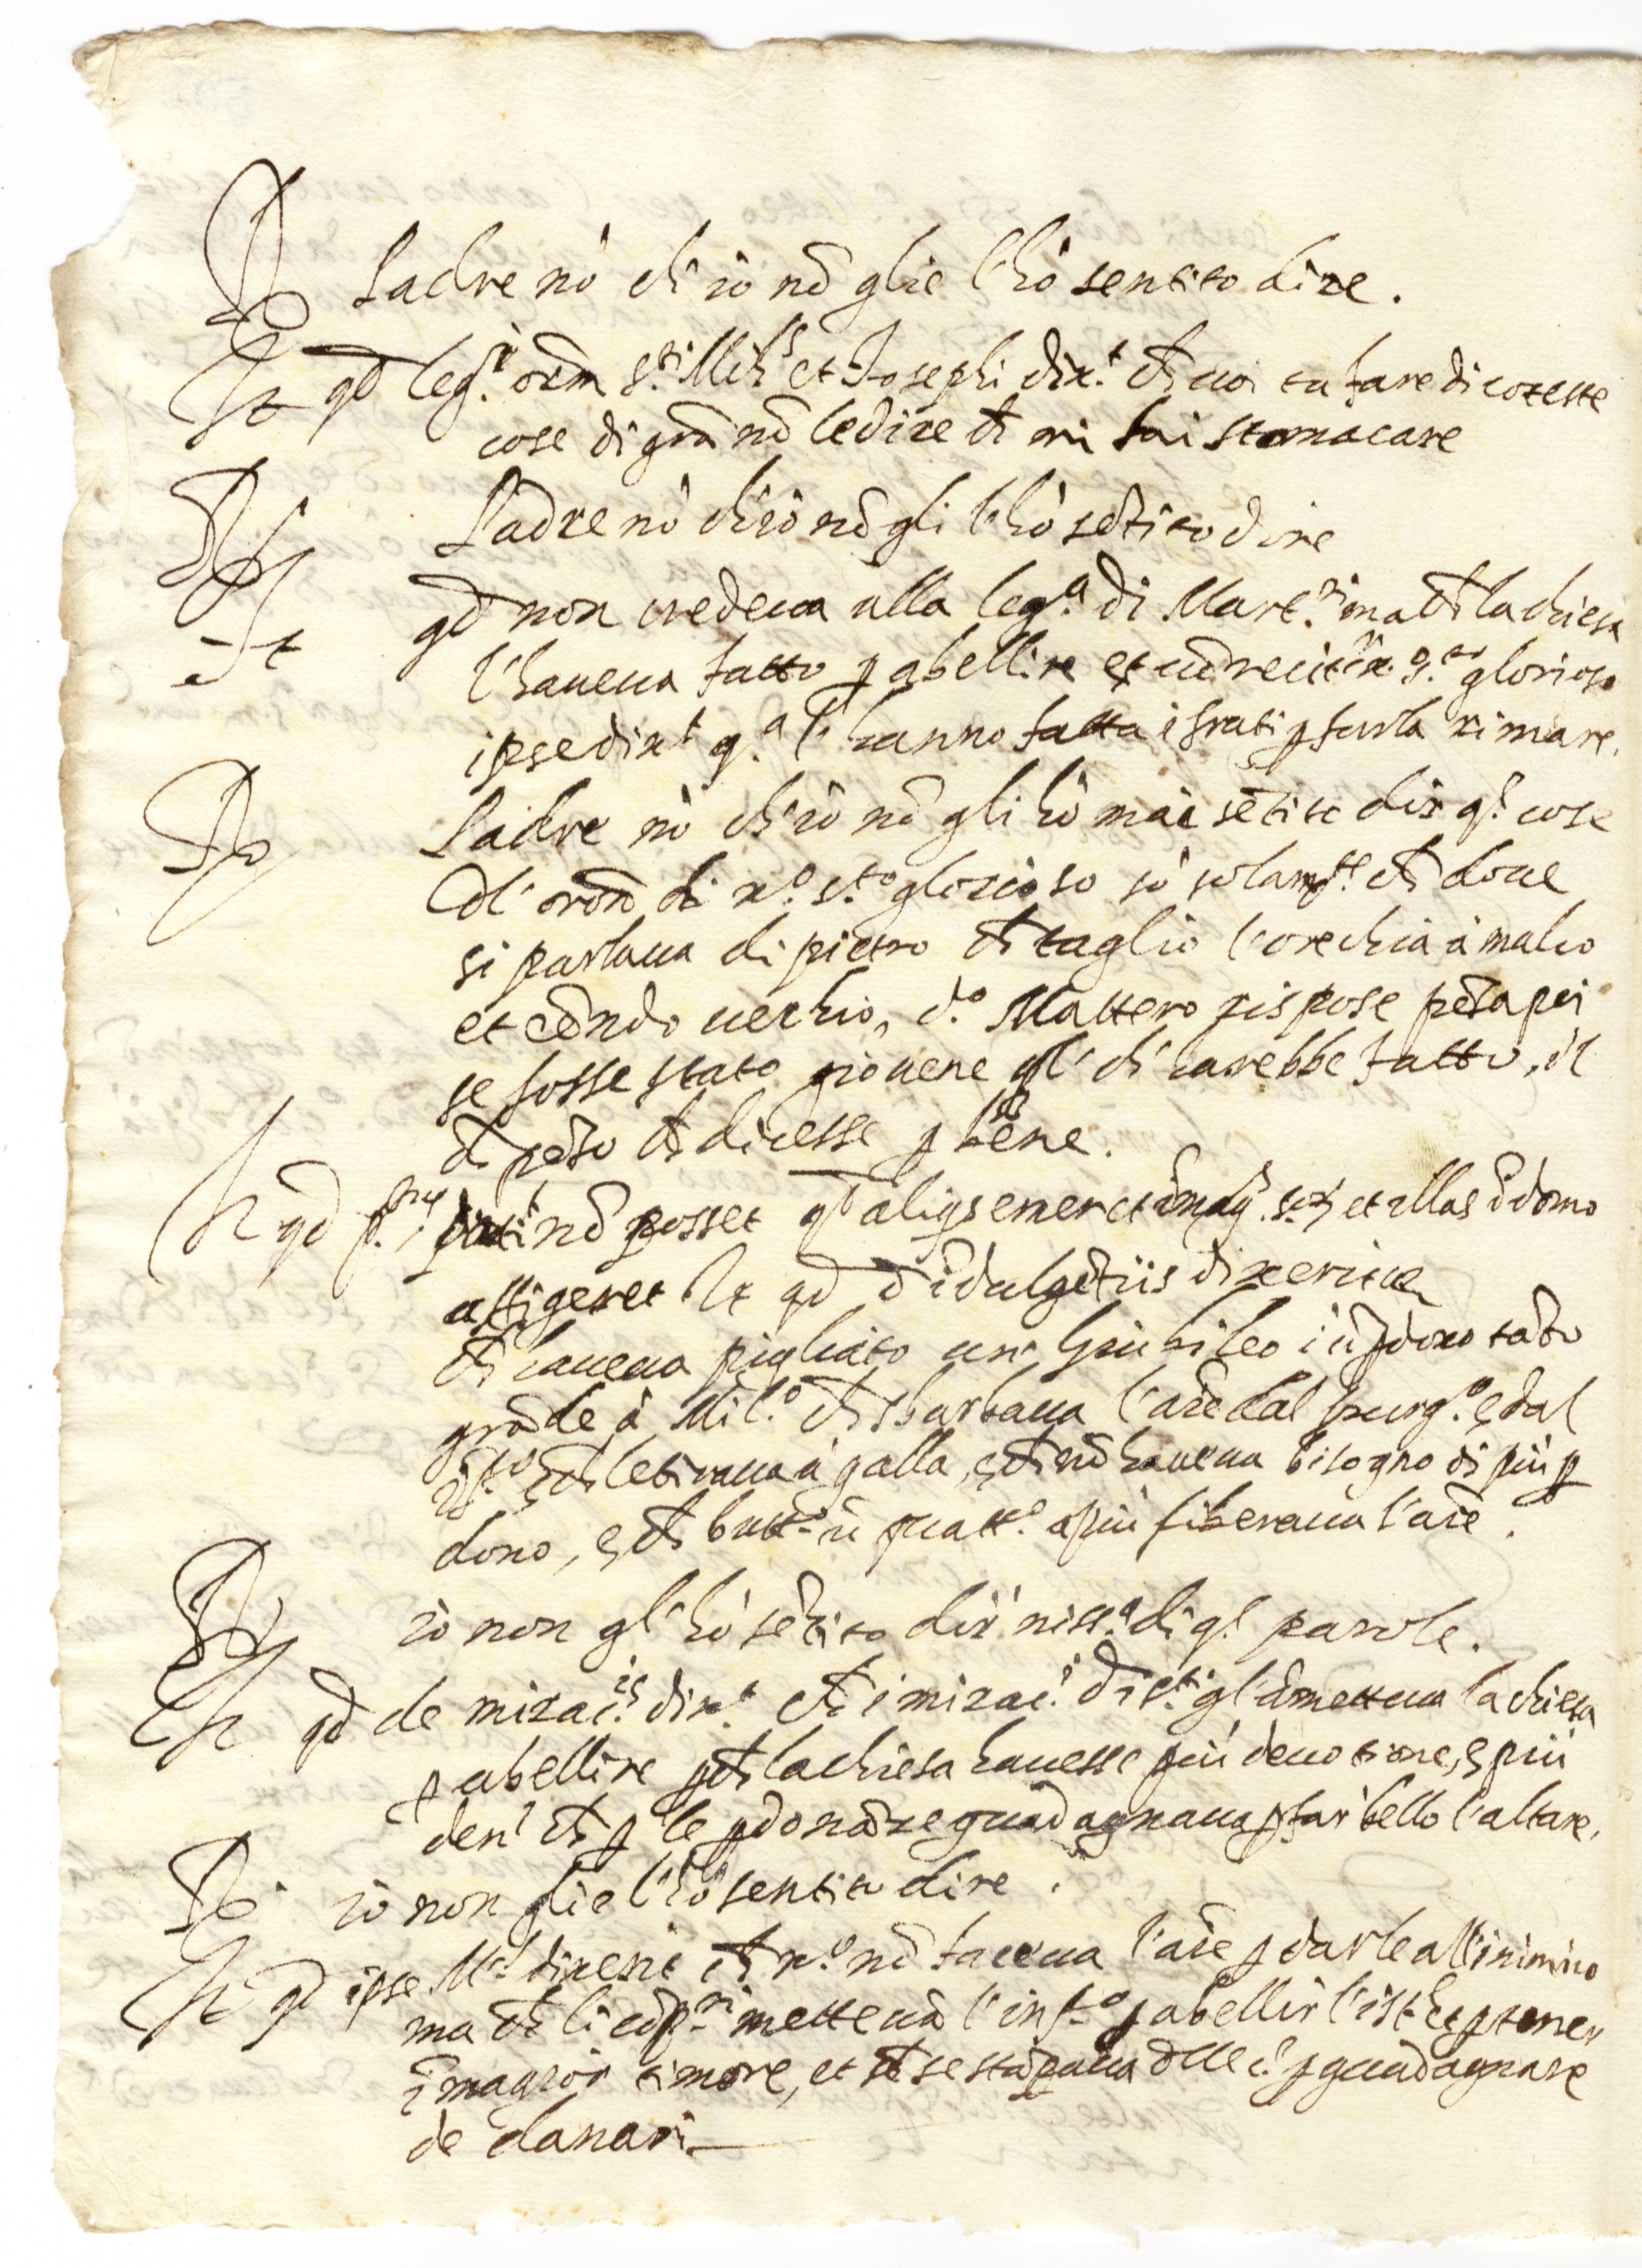 R Padre nò ch'iò nō glie l'hò sentito dire.
It qd leg.r orōm S.ti Mich.s et Josephi dix.t ch vuoi tu fare di coteste
cose di grā nō le dire ch mi fai stomacare
R Padre nò ch'iò nō gli l'hò sētito dire
It qd non credeva alla leg.a di Mar.t ma ch la chiesa
l'haveva fatto p abellire et cū recit S.to glorioso
ipse dix.t q.a l'hanno fatta i frati p farla rimare.
R Padre nò ch'iò nō gli hò mai sētito dir q.e cose
Dl'orōn di x.o S.to glorioso sò solam.te ch dove
si parlava di pietro ch tagliò l'orechia à malco
et eēndo vechio, d.o Matteo rispose pēsa poi
se fosse stato giovene q.l ch' harebbe fatto, il
ch pēso ch dicesse p bene.
It qd p. nō posset qd aliq.s emeret imag.s S. et illas ī domo
affigeret It qd d īdulgētiis dixerit
ch haveva pigliato un Giubileo i ū pdono tāto
grāde à Mil.o ch sbarbava l'aīe dal purg.o e dal
īf.o e ch le tirava à galla, e ch nō haveva bisogno di più p
dono, e ch butt. ū quatt. e più liberava l'aīe.
R iò non gl'hò sētito dir niss.a di q.e parole.
It qd de mirac.is dix.t ch i mirac.i d S.ti gl'ametteva la chiesa
p abellire p ch la chiesa havesse più devotione, e più
den.i ch p le pdonāze guadagnava p far bello l'altare.
R iò non glie l'hò sentito dire.
It qd ipse M.s dixerit ch x.o nō faceva l'aīe p darle all'inimico
ma ch li mettevā l'inf.o p abellir l'ist. e p tener
ī maggior timore, et ch se stāpava delle p guadagnare
de danari